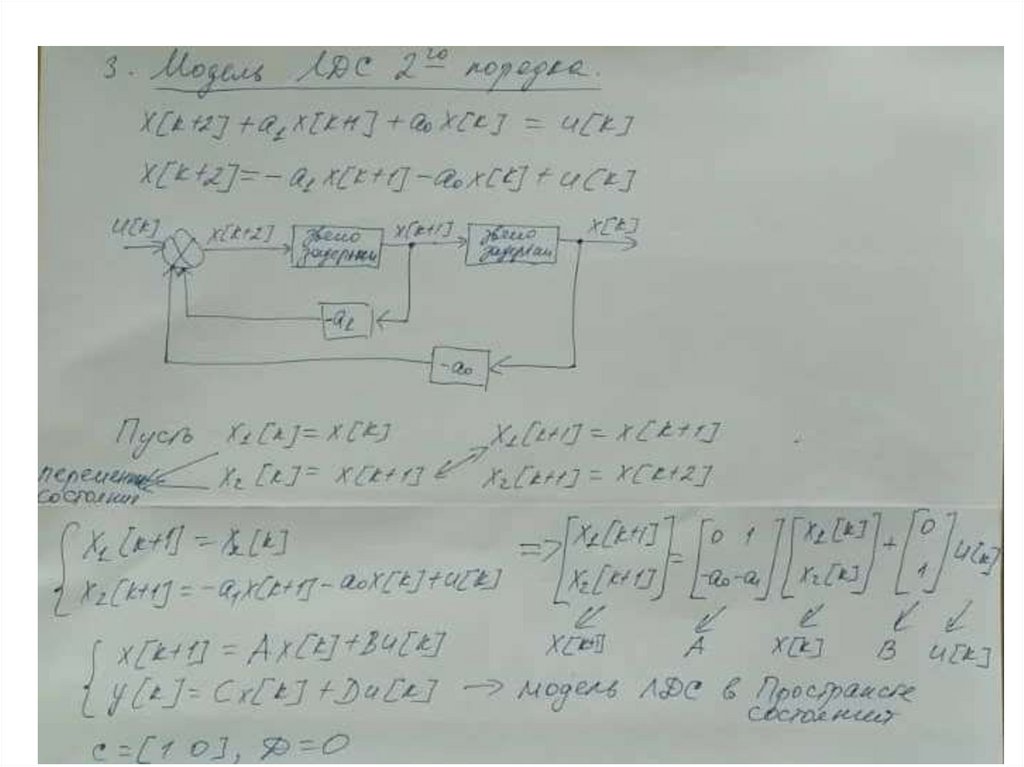 3. Модель ЛДС 2го порядка.
x[k+2] + a1 x[k+1] + a0 x[k] = u[k]
x[k+2] = - a1 x[k+1] - a0 x[k] + u[k]
u[k] x[k+2] звено задержки x[k+1] звено задержки x[k]
-a1
-a0
Пусть x1[k] = x[k] x1[k+1] = x[k+1]
x2[k] = x[k+1] x2[k+1] = x[k+2]
переменные
состояния
x1[k+1] = x2[k]
x2[k+1] = -a1x[k+1] - a0x[k] + u[k]
=> [x1[k+1] x2[k+1]] = [0 1 -a0 -a1] [x1[k] x2[k]] + [0 1] u[k]
x[k+1] A x[k] B u[k]
x[k+1] = Ax[k] + Bu[k]
y[k] = Cx[k] + Du[k] → модель ЛДС в Пространстве
состояний
C = [1 0], D = 0